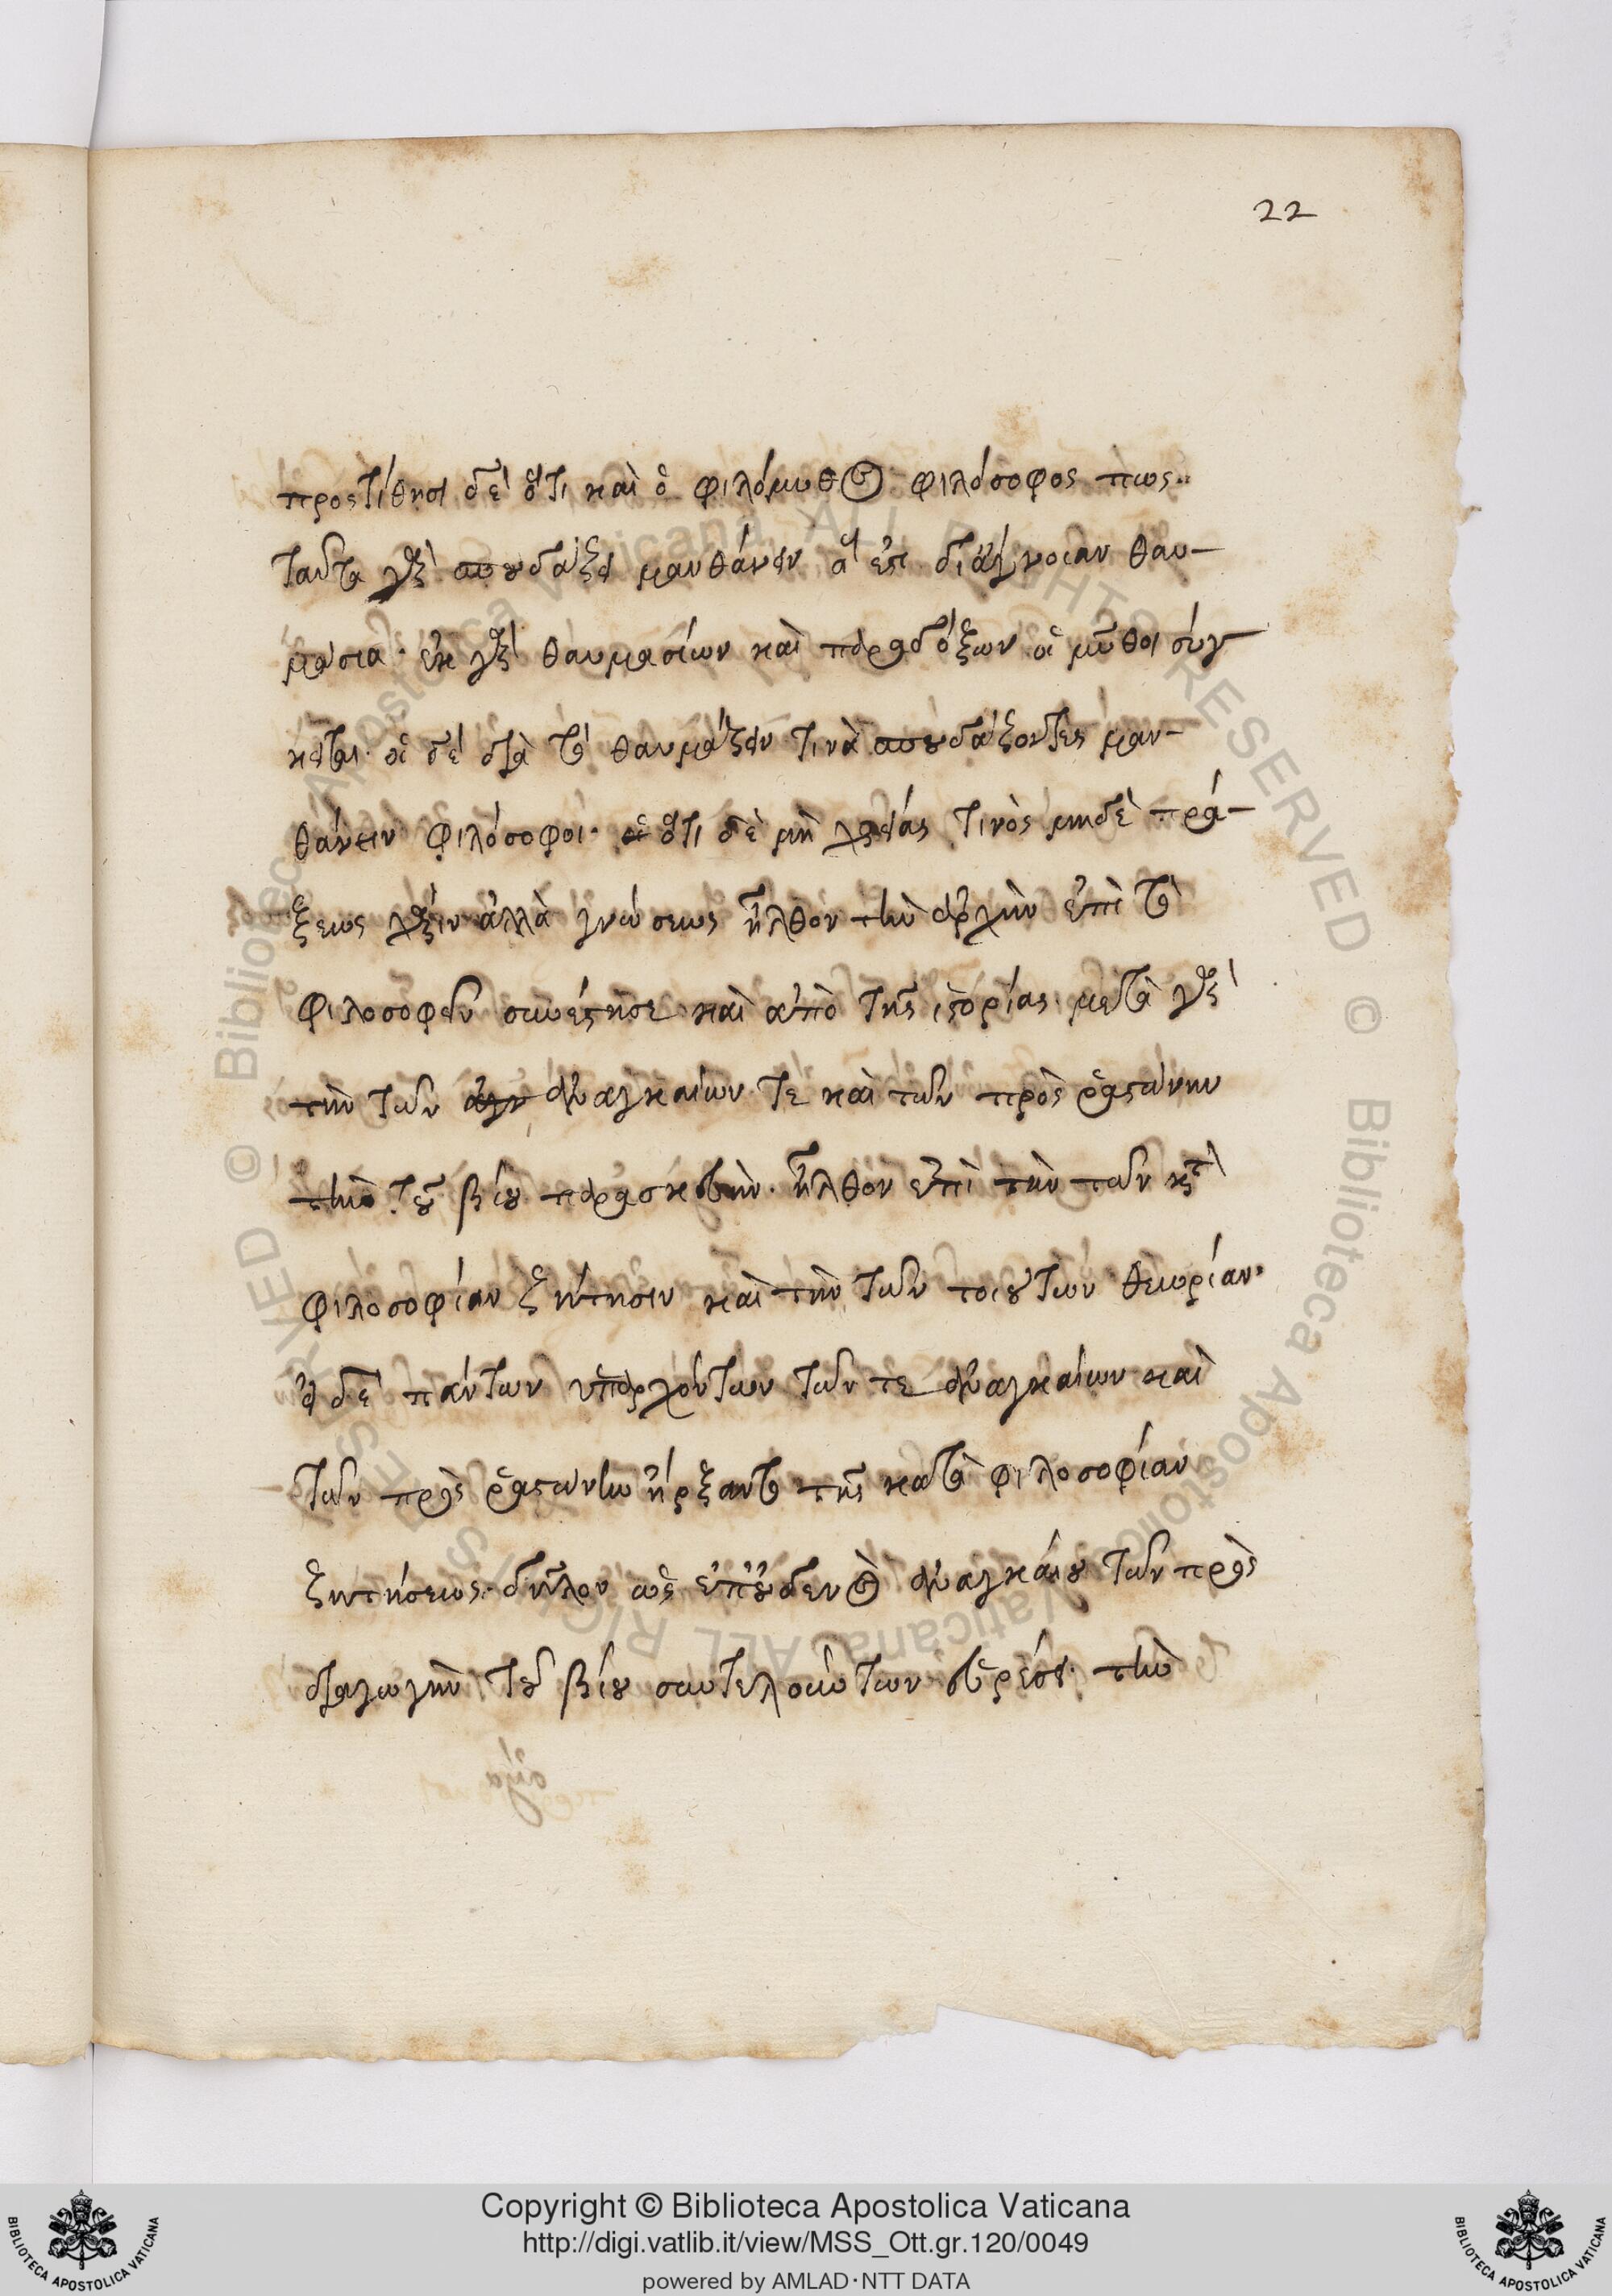 22
προστίθησι δὲ ὅτι καὶ ὁ φιλόμυθος φιλόσοφος πως··
ταῦτα γὰρ σπουδάζει μανθάνειν ἃ ἐπὶ διάγνοιαν θαυ-
μάσια· ἐκ γὰρ θαυμασίων καὶ παραδόξων οἱ μῦθοι σύγ-
κεινται· οἱ δὲ διὰ τὸ θαυμάζειν τινὰ σπουδάζοντες μαν-
θάνειν φιλόσοφοι· ὅτι δὲ μὴ χρείας τινὸς μηδὲ πρά-
ξεως χάριν ἀλλὰ γνώσεως ἦλθον τὴν ἀρχὴν ἐπὶ τὸ
φιλοσοφεῖν συνέστησε καὶ ἀπὸ τῆς ἱστορίας· μετὰ γὰρ
τὴν τῶν ἀναγκαίων τε καὶ τῶν πρὸς ῥαστώνην
τὴν τοῦ βίου παρασκευὴν· ἦλθον ἐπὶ τὴν τῶν κατὰ
φιλοσοφίαν ζήτησιν καὶ τὴν τῶν τοιούτων θεωρίαν·
εἰ δὲ πάντων ὑπαρχόντων τῶν τε ἀναγκαίων καὶ
τῶν πρὸς ῥαστώνην ἤρξαντο τῆς κατὰ φιλοσοφίαν
ζητήσεως· δῆλον ὡς ἐπ' οὐδενὸς ἀναγκαίου τῶν πρὸς
διαγωγὴν τοῦ βίου συντελούντων εὑρέσει· τὴν
Copyright © Biblioteca Apostolica Vaticana
http://digi.vatlib.it/view/MSS_Ott.gr.120/0049
powered by AMLAD·NTT DATA
BIBLIOTECA APOSTOLICA VATICANA
BIBLIOTECA APOSTOLICA VATICANA
© Biblioteca Apostolica Vaticana ALL RIGHTS RESERVED © Biblioteca Apostolica Vaticana ALL RIGHTS RESERVED